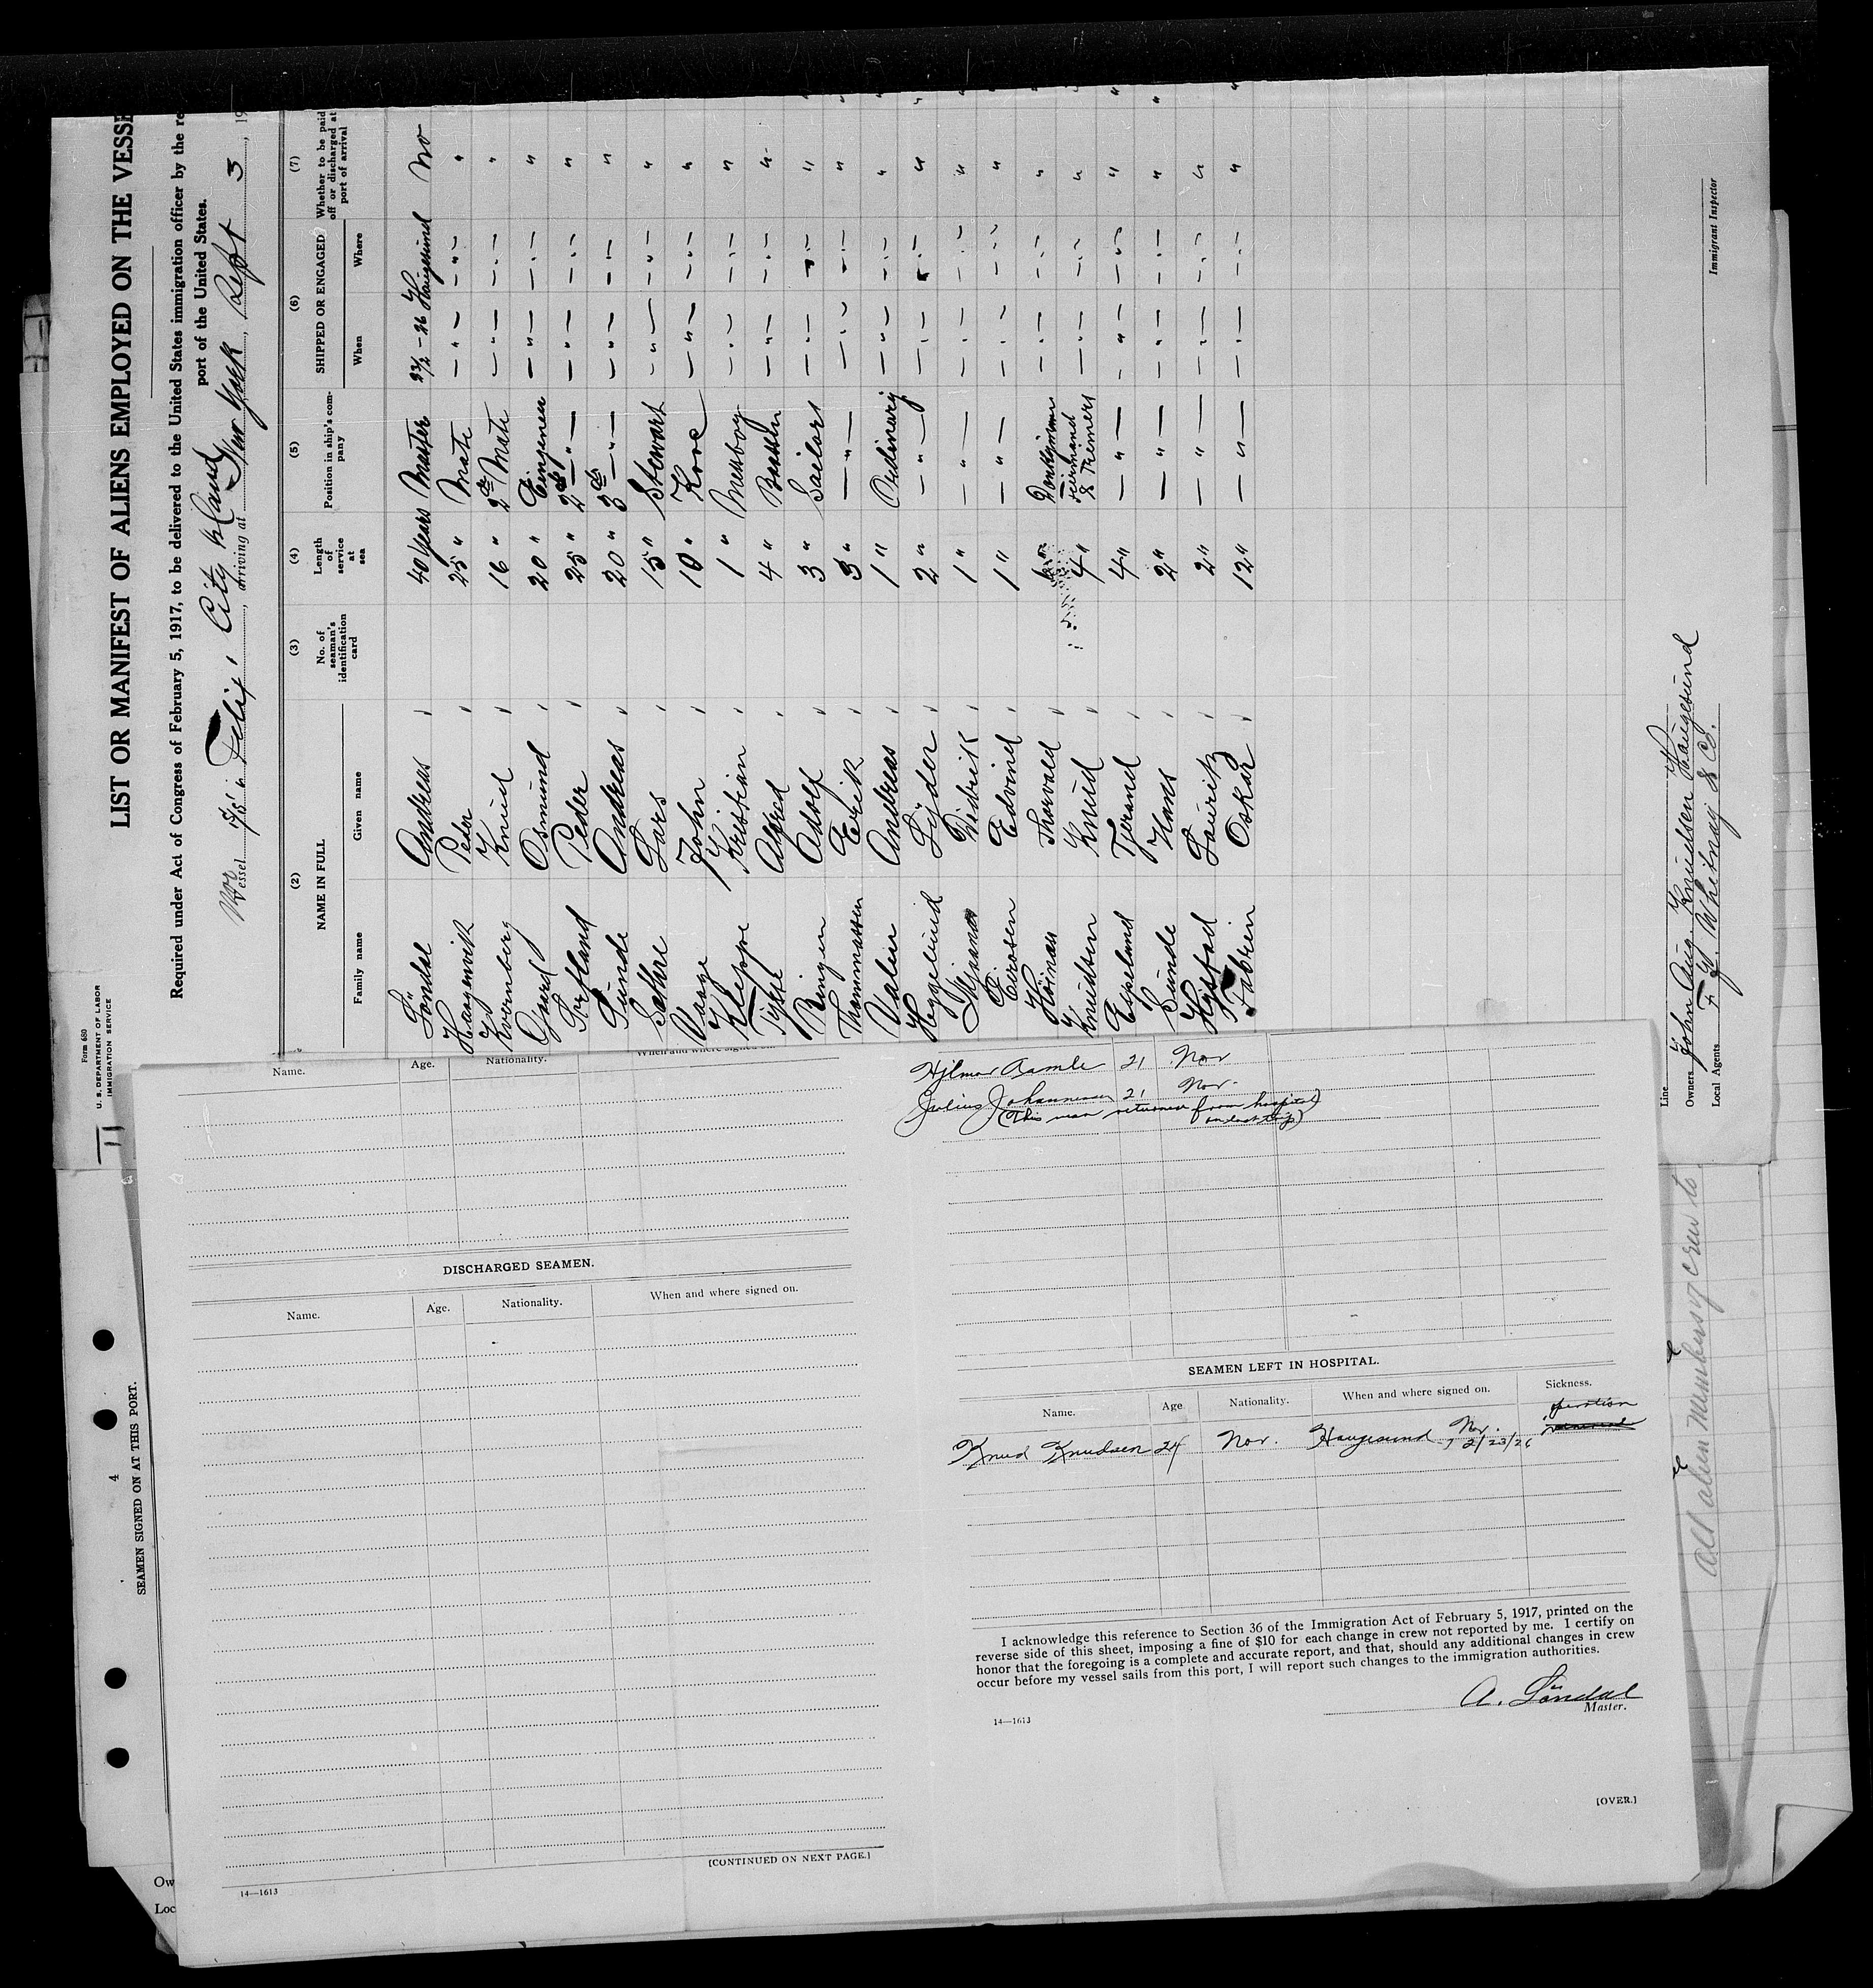 Form 680
U. S. DEPARTMENT OF LABOR
IMMIGRATION SERVICE
LIST OR MANIFEST OF ALIENS EMPLOYED ON THE VESSE
Required under Act of Congress of February 5, 1917, to be delivered to the United States immigration officer by the re
port of the United States.
Vessel Felix, arriving at New York, Sept 3, 19
(2) (3) (4) (5) (6) (7)
NAME IN FULL
Family name Given name
No. of seaman's identification card
Length of service at sea
Position in ship's company
SHIPPED OR ENGAGED
When Where
Whether to be paid off or discharged at port of arrival
Löndal Andreas 40 years Master 23/2-26 Haugesund No
Haagenvik Peder 25 " Mate — " — — " — "
Kvernberg Knud 16 " 2de Mate — " — — " — "
Gjerd Osmund 20 " — " — — " — "
Peder 25 " 2de — " — — " — — " — "
Sunde Andreas 20 " 3de — " — — " — — " — "
Sæthre Lars 15 " Stewart — " — — " — "
Vaage John 10 " — " — — " — "
Kleppe Kristian 1 " Messboy — " — — " — "
Alfred 4 " — " — — " — "
Ringen Adolf 3 " Sailors — " — — " — "
Thommassen Erik 3 " — " — — " — — " — "
Valen Andreas 1 " Ordinary — " — — " — "
Heggelund Lyder 2 " — " — — " — — " — "
Didrik 1 " — " — — " — — " — "
Edvind 1 " — " — — " — — " — "
Thorvald Donkeyman — " — — " — "
Knudsen Knud 4 " & Tremers — " — — " — "
Espeland Tjerand 4 " — " — — " — — " — "
Sunde Hans 2 " — " — — " — — " — "
Laurik 2 " — " — — " — — " — "
Oskar 12 " — " — — " — — " — "
Line
Owners John Aug. Knudsen Haugesund
Local Agents F. Y. Whitney & Co.
Immigrant Inspector
All alien members of crew to
4
SEAMEN SIGNED ON AT THIS PORT.
Ow
Loc
Name. Age. Nationality. When and where signed on.
DISCHARGED SEAMEN.
Name. Age. Nationality. When and where signed on.
[CONTINUED ON NEXT PAGE.]
14—1613
Hjlmar Aamle 21 Nor
Julius Johannessen 21 Nor.
(This man returned from hospital
on last trip)
SEAMEN LEFT IN HOSPITAL.
Name. Age Nationality. When and where signed on. Sickness.
Knud Knudsen 24 Nor. Haugesund Nor. 2/23/26 operation
I acknowledge this reference to Section 36 of the Immigration Act of February 5, 1917, printed on the
reverse side of this sheet, imposing a fine of $10 for each change in crew not reported by me. I certify on
honor that the foregoing is a complete and accurate report, and that, should any additional changes in crew
occur before my vessel sails from this port, I will report such changes to the immigration authorities.
A. Löndal
Master.
14—1613
[OVER.]